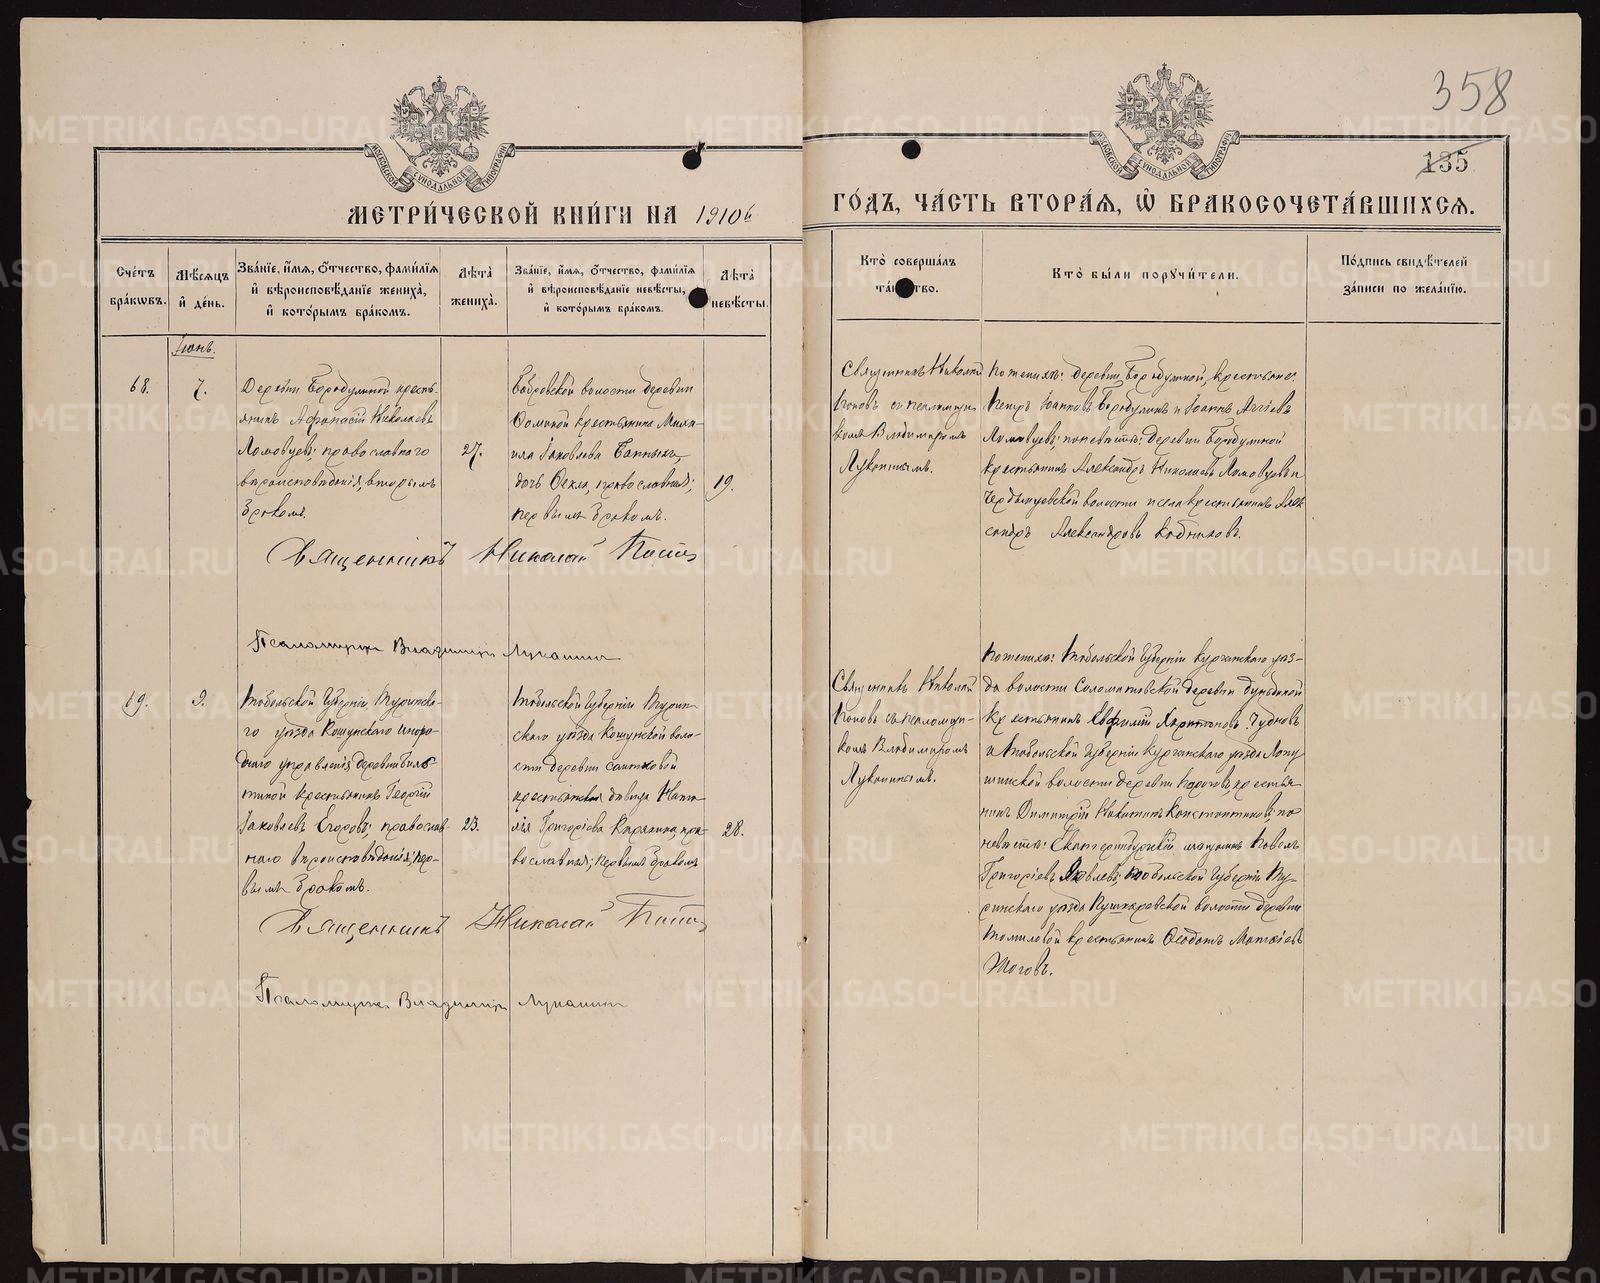 358
135
МОСКОВСКОЙ СѴНОДАЛЬНОЙ ТИПОГРАФІИ
МОСКОВСКОЙ СѴНОДАЛЬНОЙ ТИПОГРАФІИ
МЕТРИ́ЧЕСКОЙ КНИ́ГИ НА 1910й
ГО́ДЪ, ЧА́СТЬ ВТОРА́Я, Ѡ БРАКОСОЧЕТА́ВШИХСЯ.
Сче́тъ бра́кѡвъ.
Мѣ́сяцъ и҆ де́нь.
Зва́нїе, и҆́мя, о҆́тчество, фами́лїя
и҆ вѣроисповѣ́данїе жениха̀,
и҆ кото́рымъ бра́комъ.
Лѣ́та жениха̀.
Зва́нїе, и҆́мя, о҆́тчество, фами́лїя
и҆ вѣроисповѣ́данїе невѣ́сты,
и҆ кото́рымъ бра́комъ.
Лѣ́та невѣ́сты.
Кто̀ соверша́лъ
та́ тво.
Кто̀ бы́ли порꙋчи́тели.
По́дпись свидѣ́телей
за́писи по жела́нїю.
Іюнь.
68.
7.
Деревни Бородулиной кресть-
янинъ Афанасій Николаевъ
Ломовцевъ; православнаго
вѣроисповѣданія, вторымъ
бракомъ.
27.
Бобровской волости деревни
Фоминой крестьянина Миха-
ила Іаковлева
дочь Фекла, православная;
первымъ бракомъ.
19.
Священникъ Николай
Поповъ съ псаломщи-
комъ Владимиромъ
Лукинымъ.
По женихѣ: деревни Бородулиной, крестьяне:
Петръ Іоанновъ Бородулинъ и Іоаннъ
Ломовцевъ; по невѣстѣ: деревни Бородулиной
крестьянинъ Александръ Николаевъ Ломовцевъ и
волости и села крестьянинъ Алек-
сандръ Александровъ
Священникъ Николай Поповъ
Псаломщикъ Владимиръ Лукинъ
69.
9.
Тобольской губерніи, Туринска-
го уѣзда Кошукскаго инород-
наго управленія деревни
крестьянинъ Георгій
Іаковлевъ Егоровъ; православ-
наго вѣроисповѣданія; пер-
вымъ бракомъ.
23.
Тобольской губерніи Турин-
скаго уѣзда Кошукской воло-
сти деревни
крестьянская дѣвица Ната-
лія Григоріева пра-
вославная; первымъ бракомъ
28.
Священникъ Николай
Поповъ съ псаломщи-
комъ Владимиромъ
Лукинымъ.
По женихѣ: Тобольской губерніи Курганскаго уѣз-
да волости Соломатовской деревни
крестьянинъ Евфимій Харитоновъ Чудновъ
и Тобольской губерніи Курганскаго уѣзда Лопу-
шинской волости деревни крестья-
нинъ Димитрій Никитинъ Константиновъ; по
невѣстѣ: Екатеринбургскій мѣщанинъ Павелъ
Григоріевъ Яковлевъ; Тобольской губерніи Ту-
ринскаго уѣзда Пушкаревской волости деревни
Томиловой крестьянинъ Ѳеодотъ Матѳіевъ
Священникъ Николай Поповъ
Псаломщикъ Владимиръ Лукинъ
METRIKI.GASO-URAL.RU